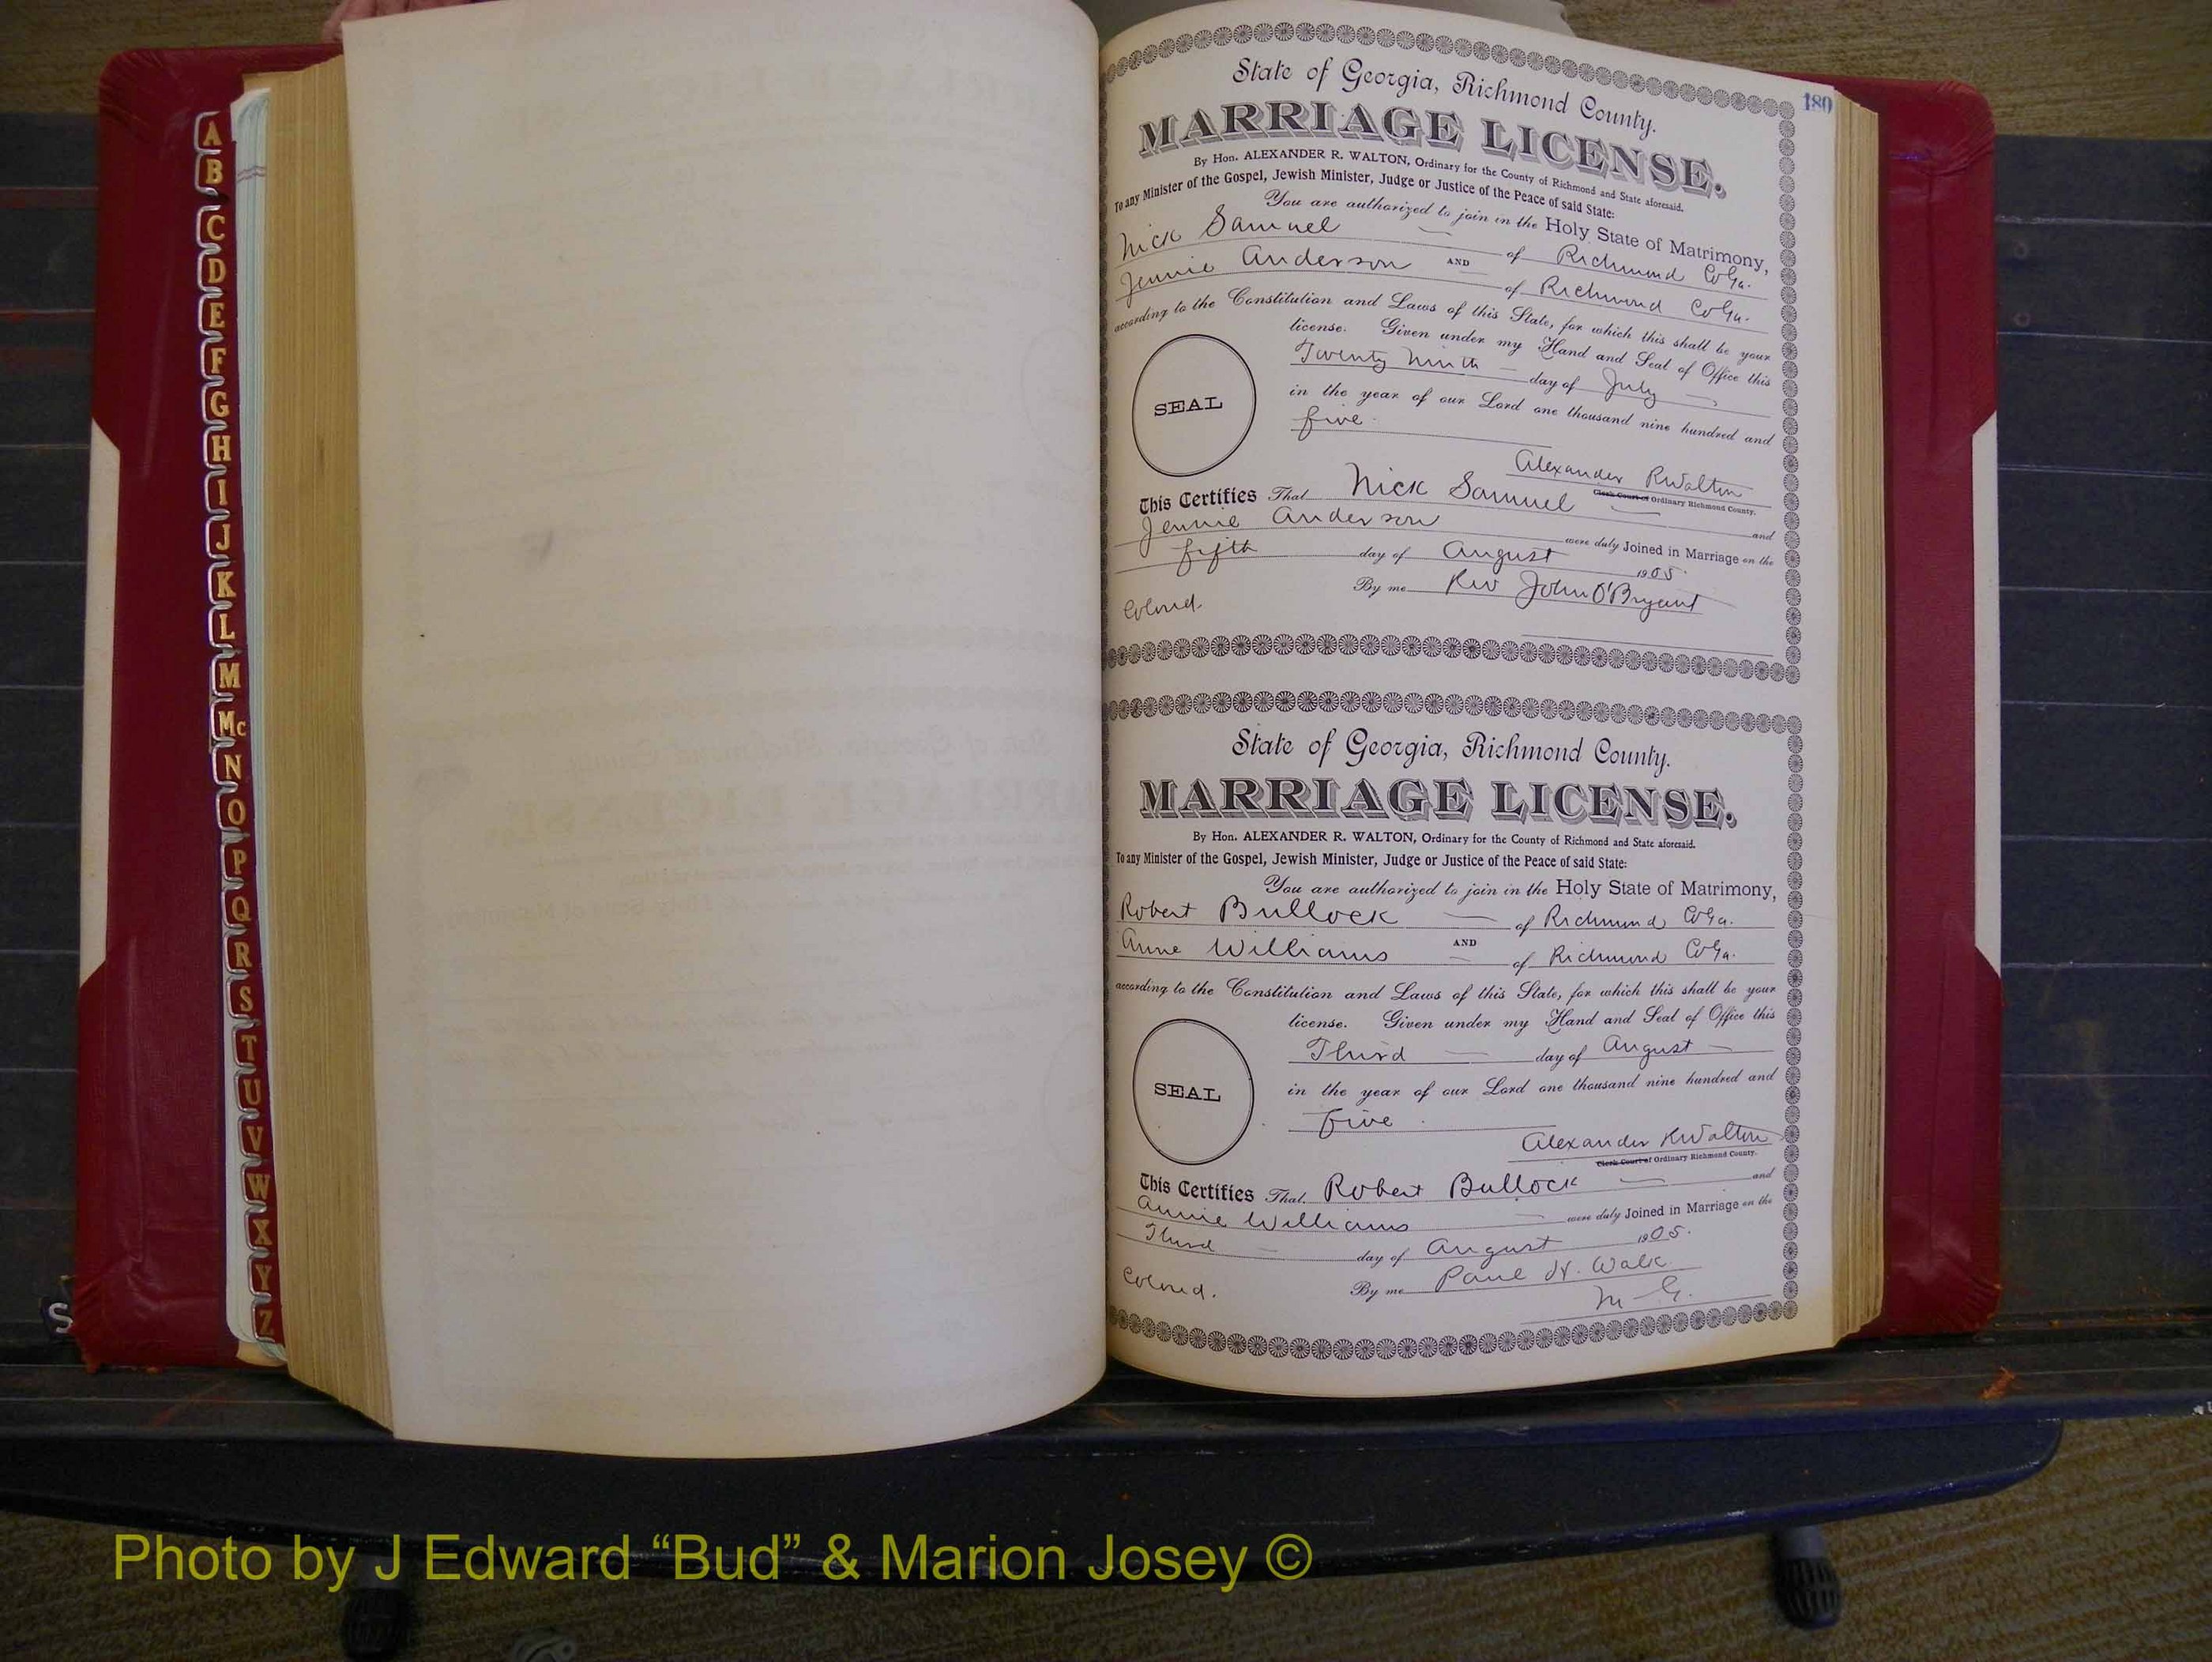 A
B
C
D
E
F
G
H
I
J
K
L
M
Mc
N
O
P
Q
R
S
T
U
V
W
X
Y
Z
180
State of Georgia, Richmond County.
MARRIAGE LICENSE.
By Hon. ALEXANDER R. WALTON, Ordinary for the County of Richmond and State aforesaid.
To any Minister of the Gospel, Jewish Minister, Judge or Justice of the Peace of said State:
You are authorized to join in the Holy State of Matrimony,
Nick Samuel of Richmond Co Ga.
AND
Jennie Anderson of Richmond Co Ga.
according to the Constitution and Laws of this State, for which this shall be your
license. Given under my Hand and Seal of Office this
Twenty Ninth day of July
in the year of our Lord one thousand nine hundred and
five
SEAL
Alexander R Walton
Clerk Court of Ordinary Richmond County.
This Certifies That Nick Samuel and
Jennie Anderson were duly Joined in Marriage on the
fifth day of August 1905.
By me Rev John O'Bryant
Colored.
State of Georgia, Richmond County.
MARRIAGE LICENSE.
By Hon. ALEXANDER R. WALTON, Ordinary for the County of Richmond and State aforesaid.
To any Minister of the Gospel, Jewish Minister, Judge or Justice of the Peace of said State:
You are authorized to join in the Holy State of Matrimony,
Robert Bullock of Richmond Co Ga.
AND
Anne Williams of Richmond Co Ga.
according to the Constitution and Laws of this State, for which this shall be your
license. Given under my Hand and Seal of Office this
Third day of August
in the year of our Lord one thousand nine hundred and
Five
SEAL
Alexander R Walton
Clerk Court of Ordinary Richmond County.
This Certifies That Robert Bullock and
Annie Williams were duly Joined in Marriage on the
Third day of August 1905.
By me Paul H. Walk
M G.
Colored.
Photo by J Edward “Bud” & Marion Josey ©